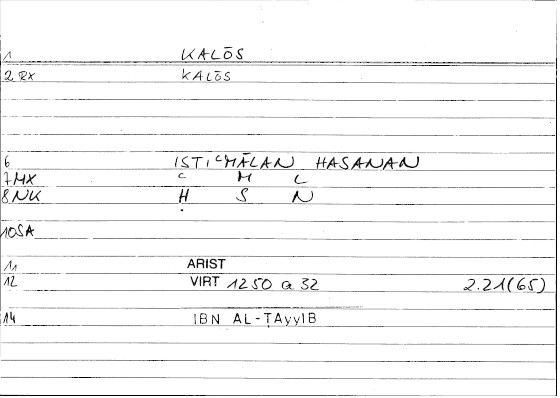 1 KALŌS
2 RX KALŌS
6 ISTIᶜMĀLAN HASANAN
7 MX ᶜ M L
8 NK Ḥ S N
10 SA
11 ARIST
12 VIRT 1250 a 32 2.21(65)
14 IBN AL-ṬAyyIB